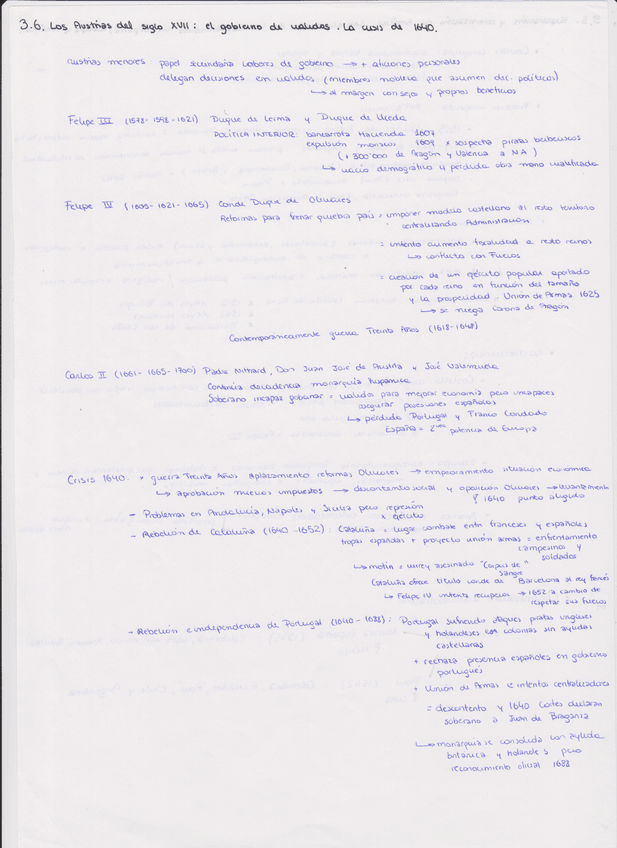 3.6. Los Austrias del siglo XVII: el gobierno de validos. La crisis de 1640.
Austrias menores: papel secundario labores de gobierno → + aficiones personales
delegan decisiones en validos (miembros nobleza que asumen dec. políticas)
↳ al margen consejos y propios beneficios
Felipe III (1578-1598-1621) Duque de Lerma y Duque de Uceda
POLÍTICA INTERIOR: bancarrota Hacienda 1607
expulsión moriscos 1609 x sospecha piratas berberiscos
(+ 300'000 de Aragón y Valencia a NA)
↳ vacío demográfico y pérdida obra mano cualificada
Felipe IV (1605-1621-1665) Conde Duque de Olivares
Reformas para frenar quiebra país = imponer modelo castellano al resto territorio
centralizando Administración
= intento aumento fiscalidad a resto reinos
↳ conflicto con Fueros
= creación de un ejército popular aportado
por cada reino en función del tamaño
y la prosperidad. Unión de Armas 1625
↳ se niega Corona de Aragón
Contemporáneamente guerra Treinta Años (1618-1648)
Carlos II (1661-1665-1700) Padre Nithard, Don Juan José de Austria y José Valenzuela
Continúa decadencia monarquía hispánica
Soberano incapaz gobernar = validos para mejorar economía pero incapaces
asegurar posesiones españolas
↳ pérdida Portugal y Franco Condado
España = 2ª potencia de Europa
Crisis 1640: x guerra Treinta Años aplazamiento reformas Olivares → empeoramiento situación económica
↳ aprobación nuevos impuestos → descontento social y oposición Olivares → levantamiento
1640 punto álgido
- Problemas en Andalucía, Nápoles y Sicilia pero represión
x ejército
- Rebelión de Cataluña (1640-1652): Cataluña = lugar combate entre franceses y españoles
tropas españolas + proyecto unión armas = enfrentamiento
campesinos y
soldados
↳ motín = virrey asesinado "Corpus de
Sangre"
Cataluña ofrece título conde de Barcelona al rey francés
↳ Felipe IV intenta recuperar → 1652 a cambio de
respetar sus fueros
- Rebelión e independencia de Portugal (1640-1688): Portugal sufriendo ataques piratas ingleses
y holandeses en colonias sin ayudas
castellanas
+ rechaza presencia españoles en gobierno
portugués
+ Unión de Armas e intentos centralizadores
= descontento y 1640 Cortes declaran
soberano a Juan de Braganza
↳ monarquía se consolida con ayuda
británica y holandesa pero
reconocimiento oficial 1688